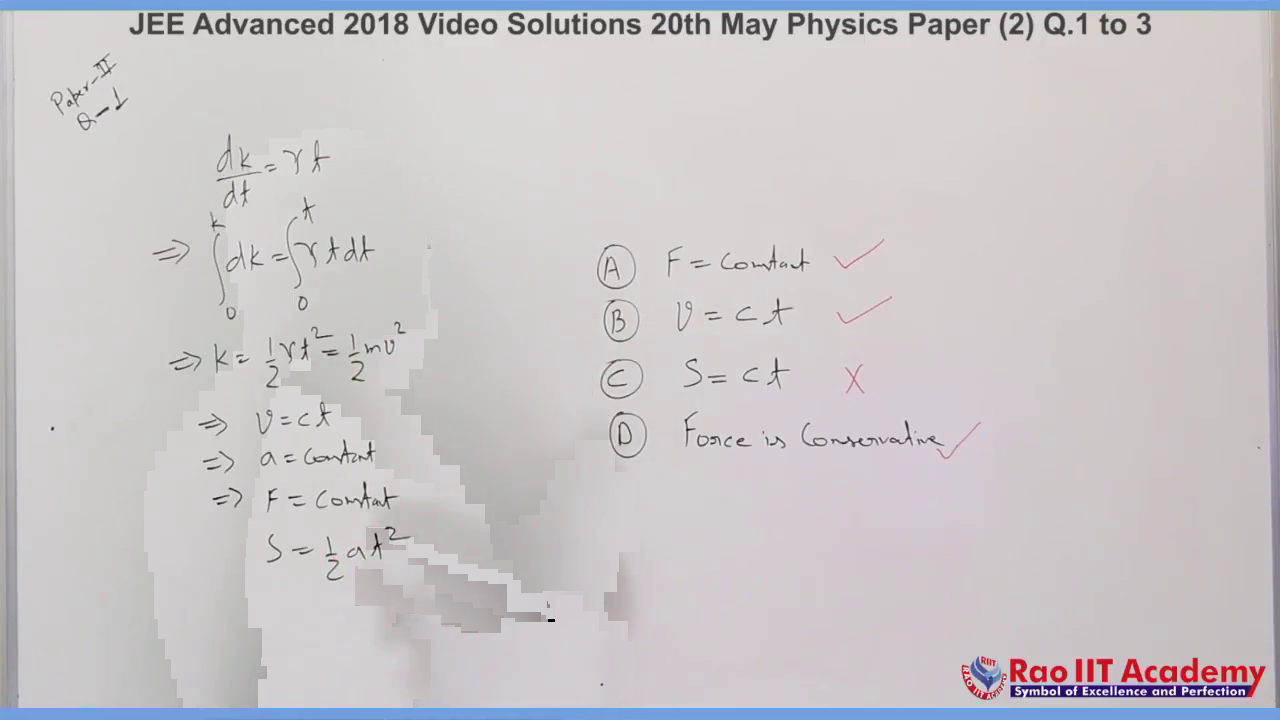 JEE Advanced 2018 Video Solutions 20th May Physics Paper (2) Q.1 to 3
Paper-II
Q-1
dk/dt = γt
⇒ ∫₀ᵏ dk = ∫₀ᵗ γt dt
⇒ k = 1/2 γt² = 1/2 mv²
⇒ v = ct
⇒ a = constant
⇒ F = constant
S = 1/2 at²
(A) F = constant ✓
(B) v = ct ✓
(C) S = ct ✗
(D) Force is conservative ✓
RIIT
RAO IIT ACADEMY
Rao IIT Academy
Symbol of Excellence and Perfection